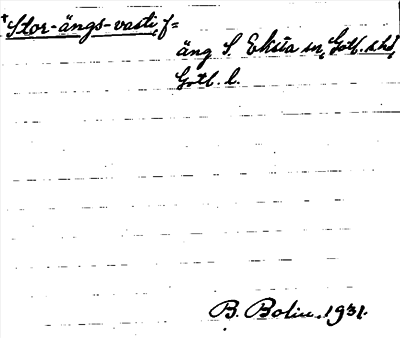 *Stor-ängs-vasti, f=
äng S. Eksta sn, Gotl. s. hd,
Gotl. l.
B. Bolin. 1931.